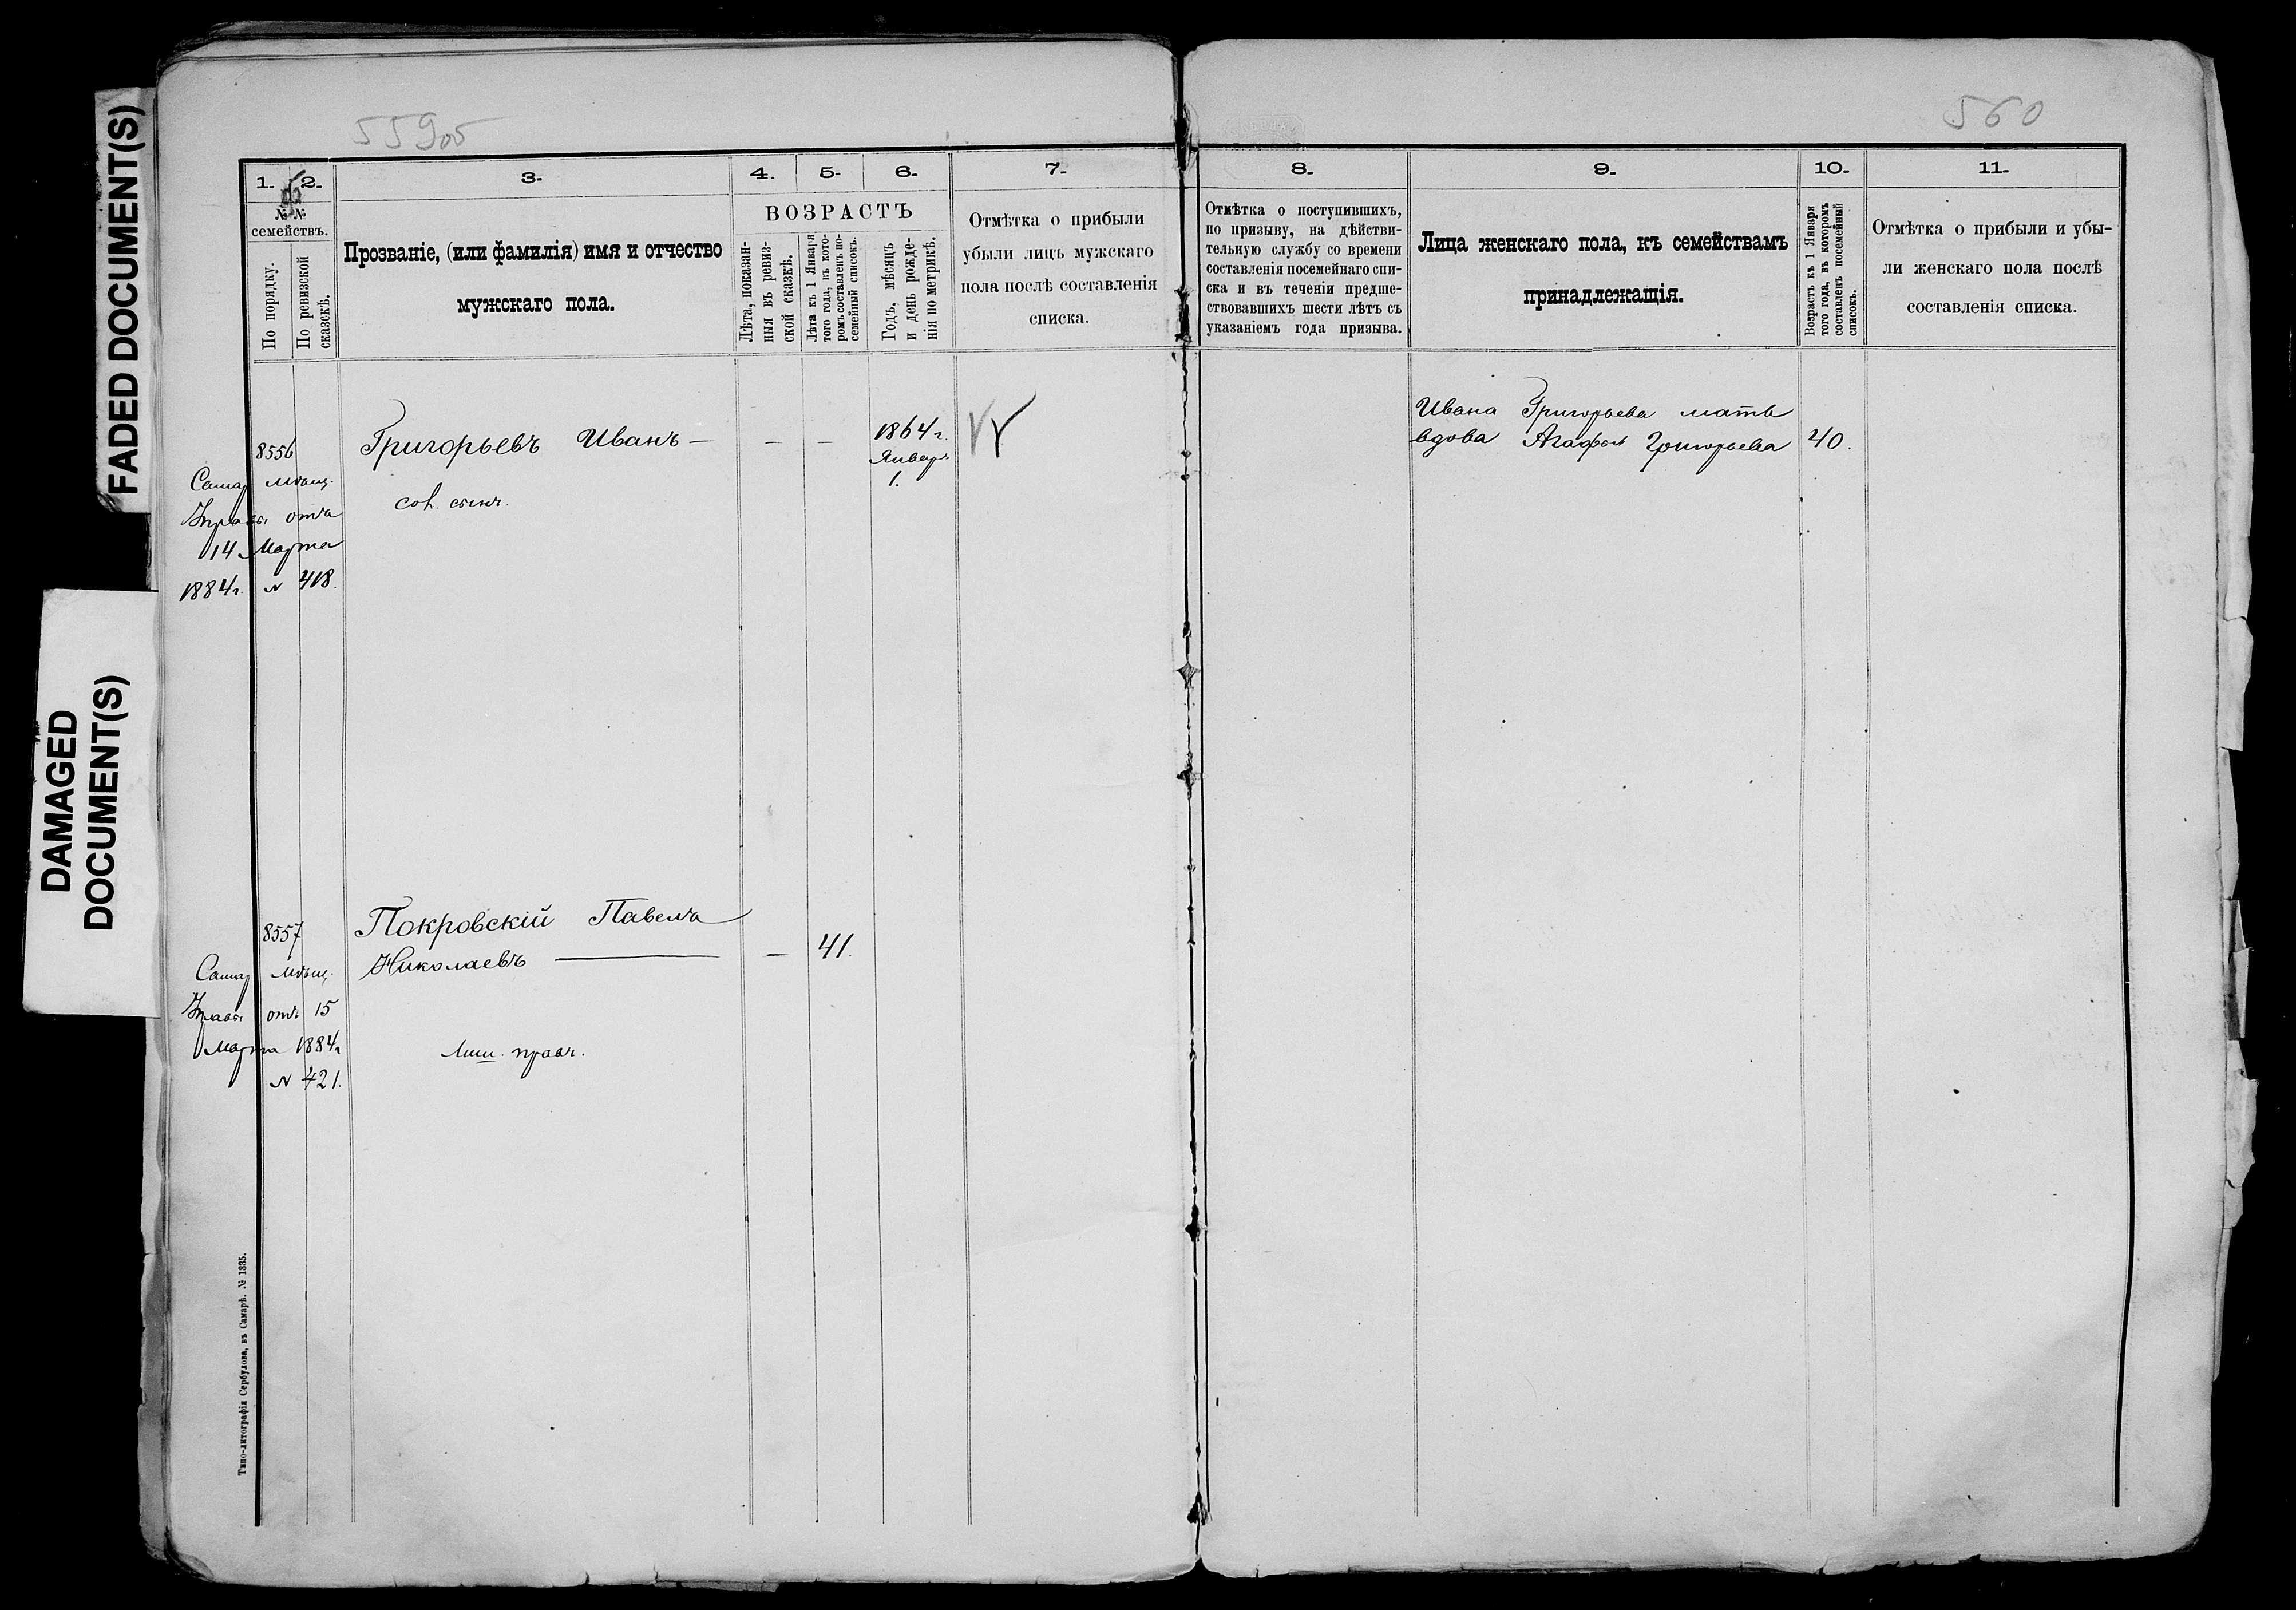 FADED DOCUMENT(S)
DAMAGED
DOCUMENT(S)
559об
560
1.
2.
3.
4.
5.
6.
7.
№№
семействъ.
По порядку.
По ревизской
сказкѣ.
Прозваніе, (или фамилія) имя и отчество
мужскаго пола.
ВОЗРАСТЪ
Лѣта, показан-
ныя въ ревиз-
ской сказкѣ.
Лѣта къ 1 Января
того года, въ кото-
ромъ составленъ по-
семейный списокъ.
Годъ, мѣсяцъ
и день рожде-
нія по метрикѣ.
Отмѣтка о прибыли
убыли лицъ мужскаго
пола послѣ составленія
списка.
8556
Самар Мѣщ.
Управы отъ
14 Марта
1884 г. № 418.
Григорьевъ Иванъ —
— —
1864 г.
Январ.
1.
сов. сынъ.
8557
Самар Мѣщ.
Управы отъ 15
Марта 1884 г
№ 421.
Покровскій Павелъ
Николаевъ —
— 41.
Лиш. правъ.
Типо-литографія Сербулова, въ Самарѣ. № 1335.
8.
9.
10.
11.
Отмѣтка о поступившихъ,
по призыву, на дѣйстви-
тельную службу со времени
составленія посемейнаго спи-
ска и въ теченіи предше-
ствовавшихъ шести лѣтъ съ
указаніемъ года призыва.
Лица женскаго пола, къ семействамъ
принадлежащія.
Возрастъ къ 1 Января
того года, въ которомъ
составленъ посемейный
списокъ.
Отмѣтка о прибыли и убы-
ли женскаго пола послѣ
составленія списка.
Ивана Григорьева мать
вдова Агафья Григорьева 40.